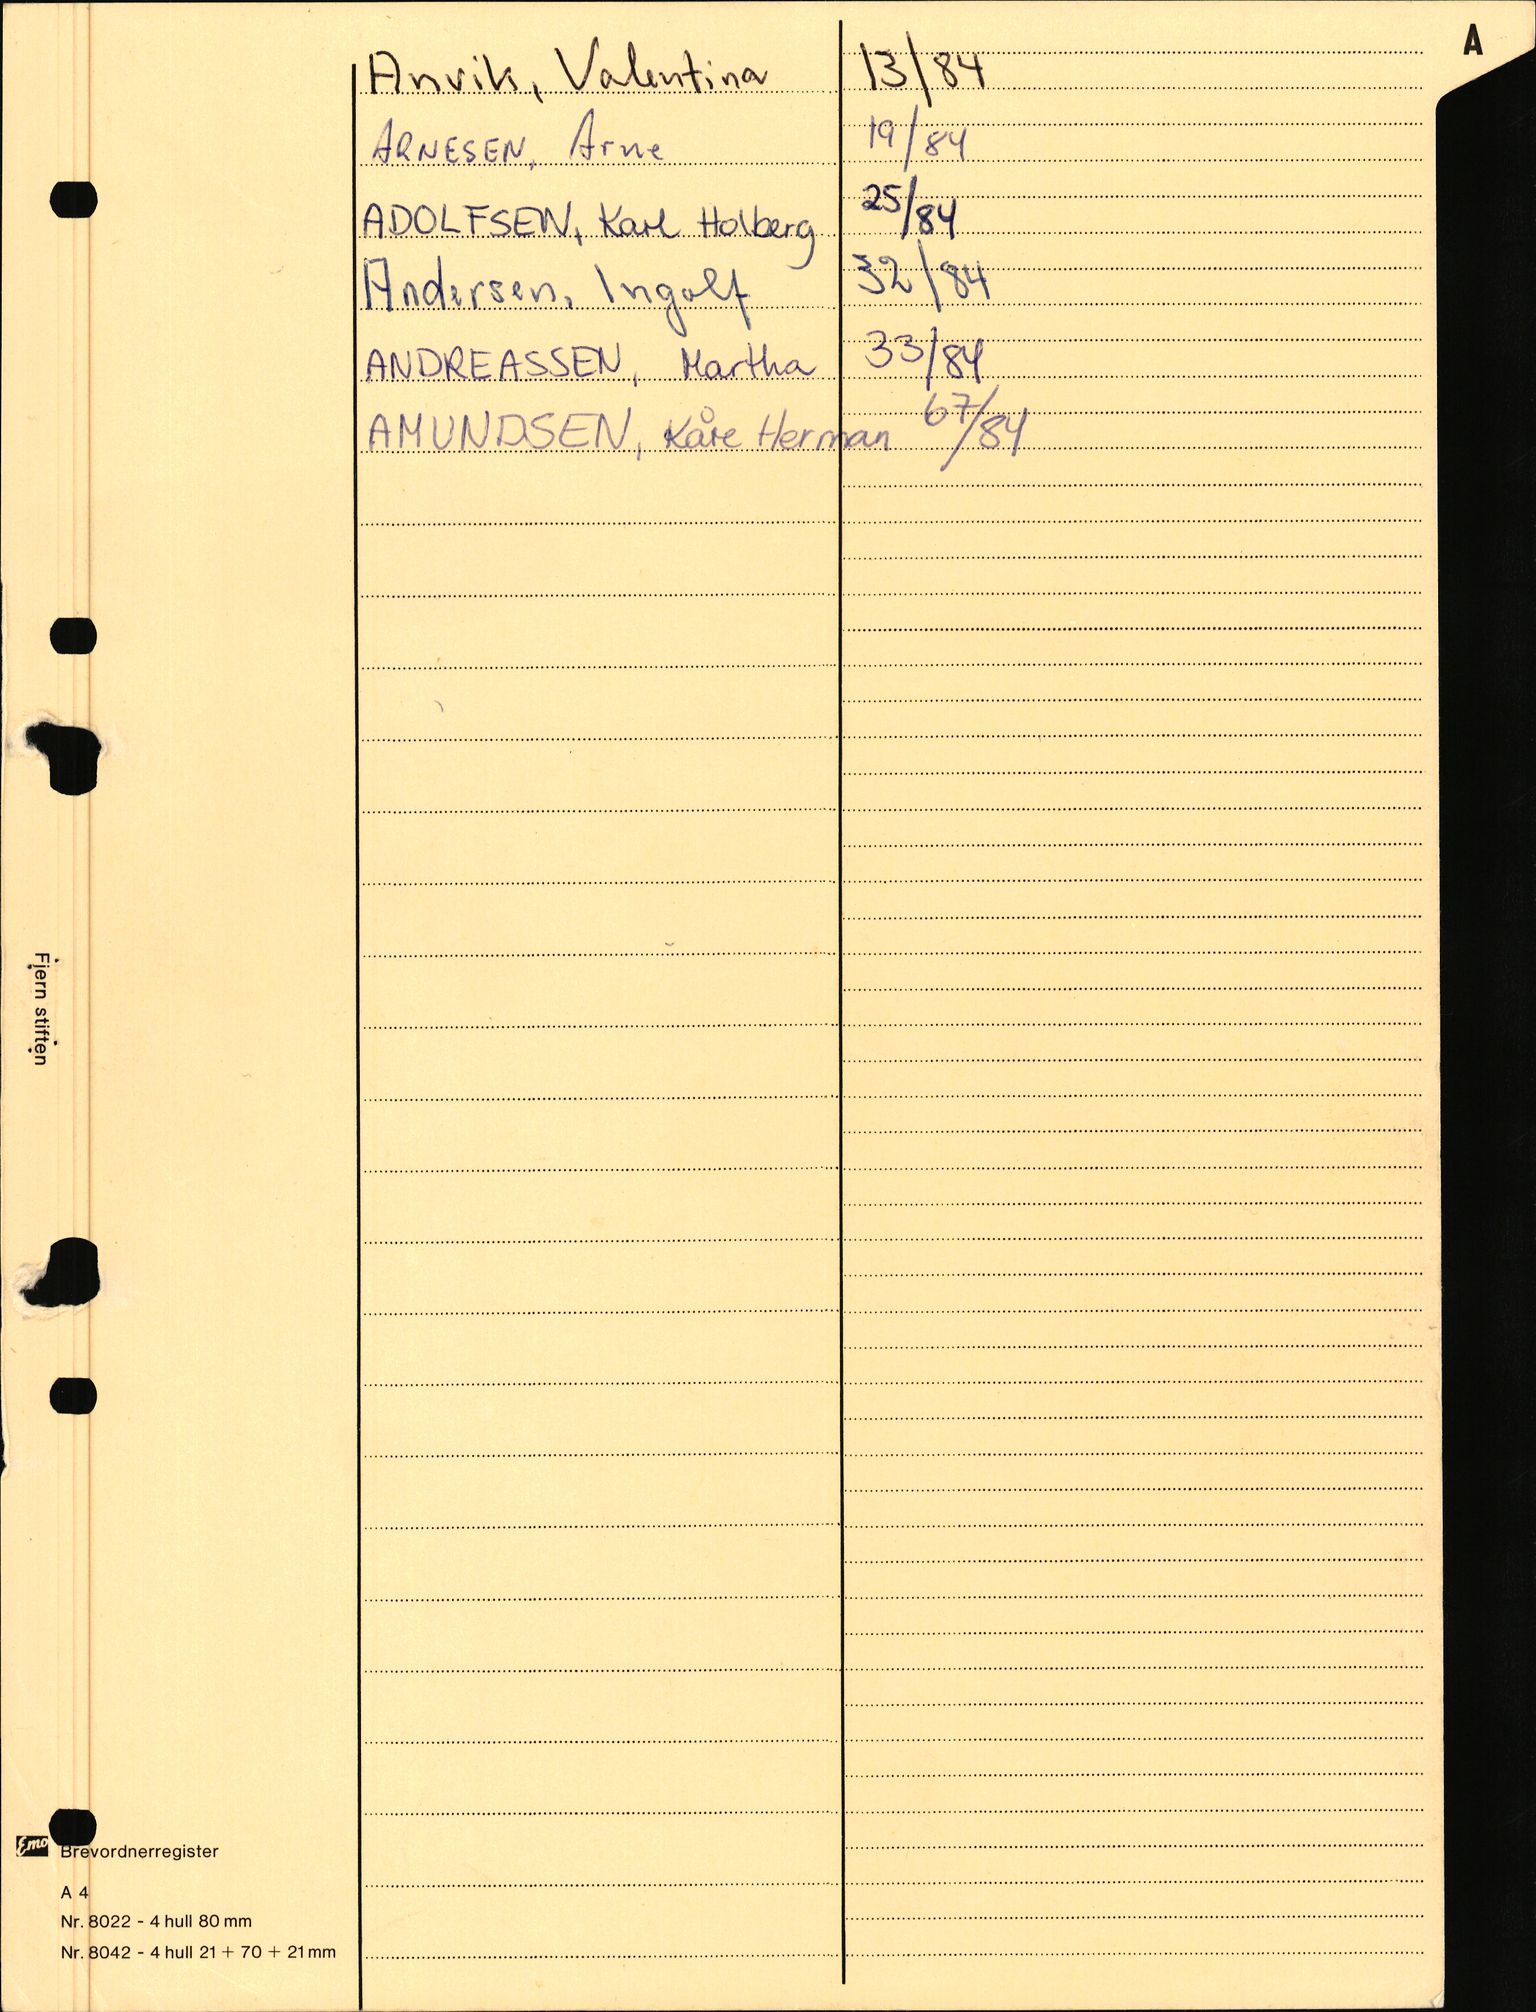 A
Anvik, Valentina 13/84
ARNESEN, Arne 19/84
ADOLFSEN, Karl Holberg 25/84
Andersen, Ingolf 32/84
ANDREASSEN, Martha 33/84
AMUNDSEN, Kåre Herman 67/84
Fjern stiften
Emo Brevordnerregister
A 4
Nr. 8022 - 4 hull 80 mm
Nr. 8042 - 4 hull 21 + 70 + 21 mm